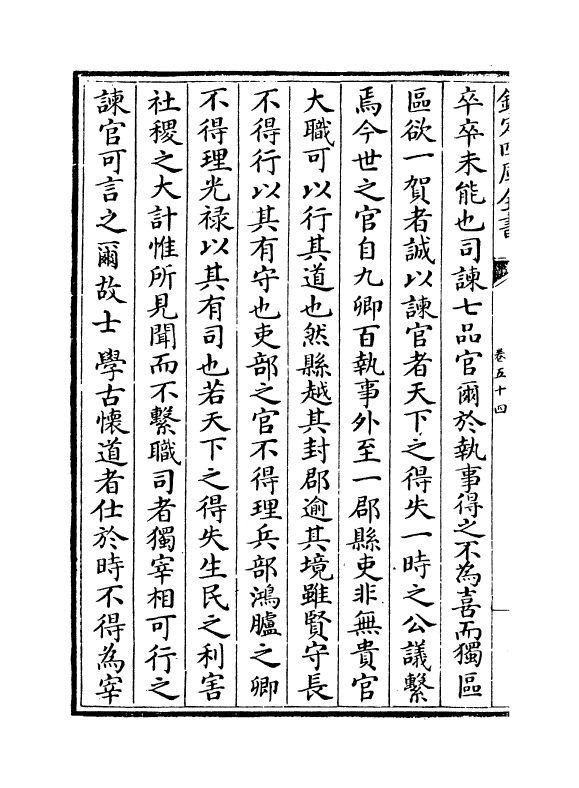 欽定四庫全書
卷五十四
卒卒未能也司諫七品官爾於執事得之不為喜而獨區
區欲一賀者誠以諫官者天下之得失一時之公議繫
焉今世之官自九卿百執事外至一郡縣吏非無貴官
大職可以行其道也然縣越其封郡逾其境雖賢守長
不得行以其有守也吏部之官不得理兵部鴻臚之卿
不得理光禄以其有司也若天下之得失生民之利害
社稷之大計惟所見聞而不繫職司者獨宰相可行之
諫官可言之爾故士 學古懷道者仕於時不得為宰